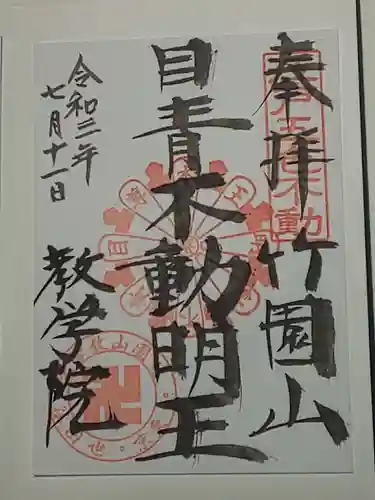 奉拝 竹園山
目青不動明王
令和三年
七月十一日
教学院